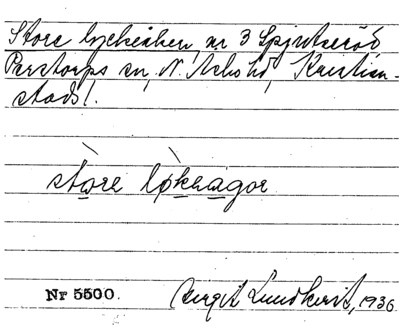 Store lyckeåker, nr 3 Spjutseröd
Perstorps sn, N. Åsbo hd, Kristian-
stads l.
støre løkeagor
Nr 5500. Birgit Lundkvist, 1936